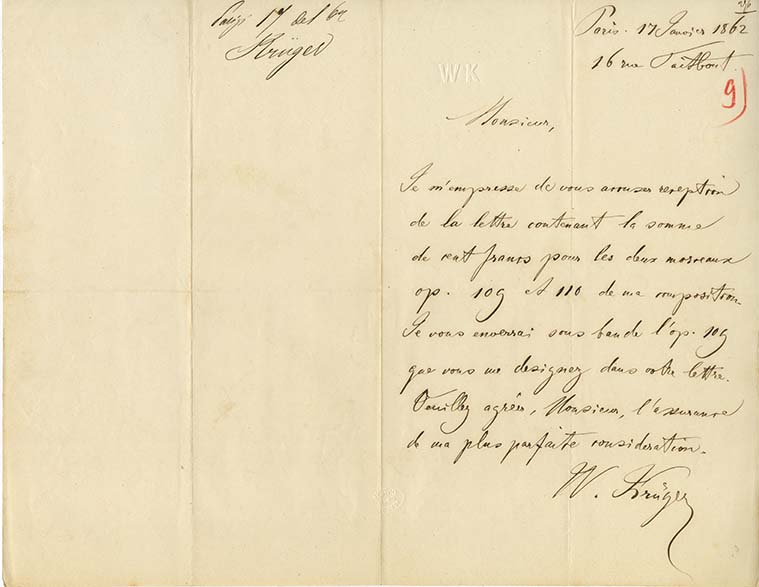 17 del 62
Krüger
Paris. 17 Janvier 1862
16 rue Taitbout.
9)
WK
Monsieur,
Je m'empresse de vous accuser reception
de la lettre contenant la somme
de cent francs pour les deux morceaux
op. 109 et 110 de ma composition.
Je vous enverrai sous bande l'op. 109
que vous me designez dans votre lettre.
Veuillez agréer, Monsieur, l'assurance
de ma plus parfaite consideration.
W. Krüger